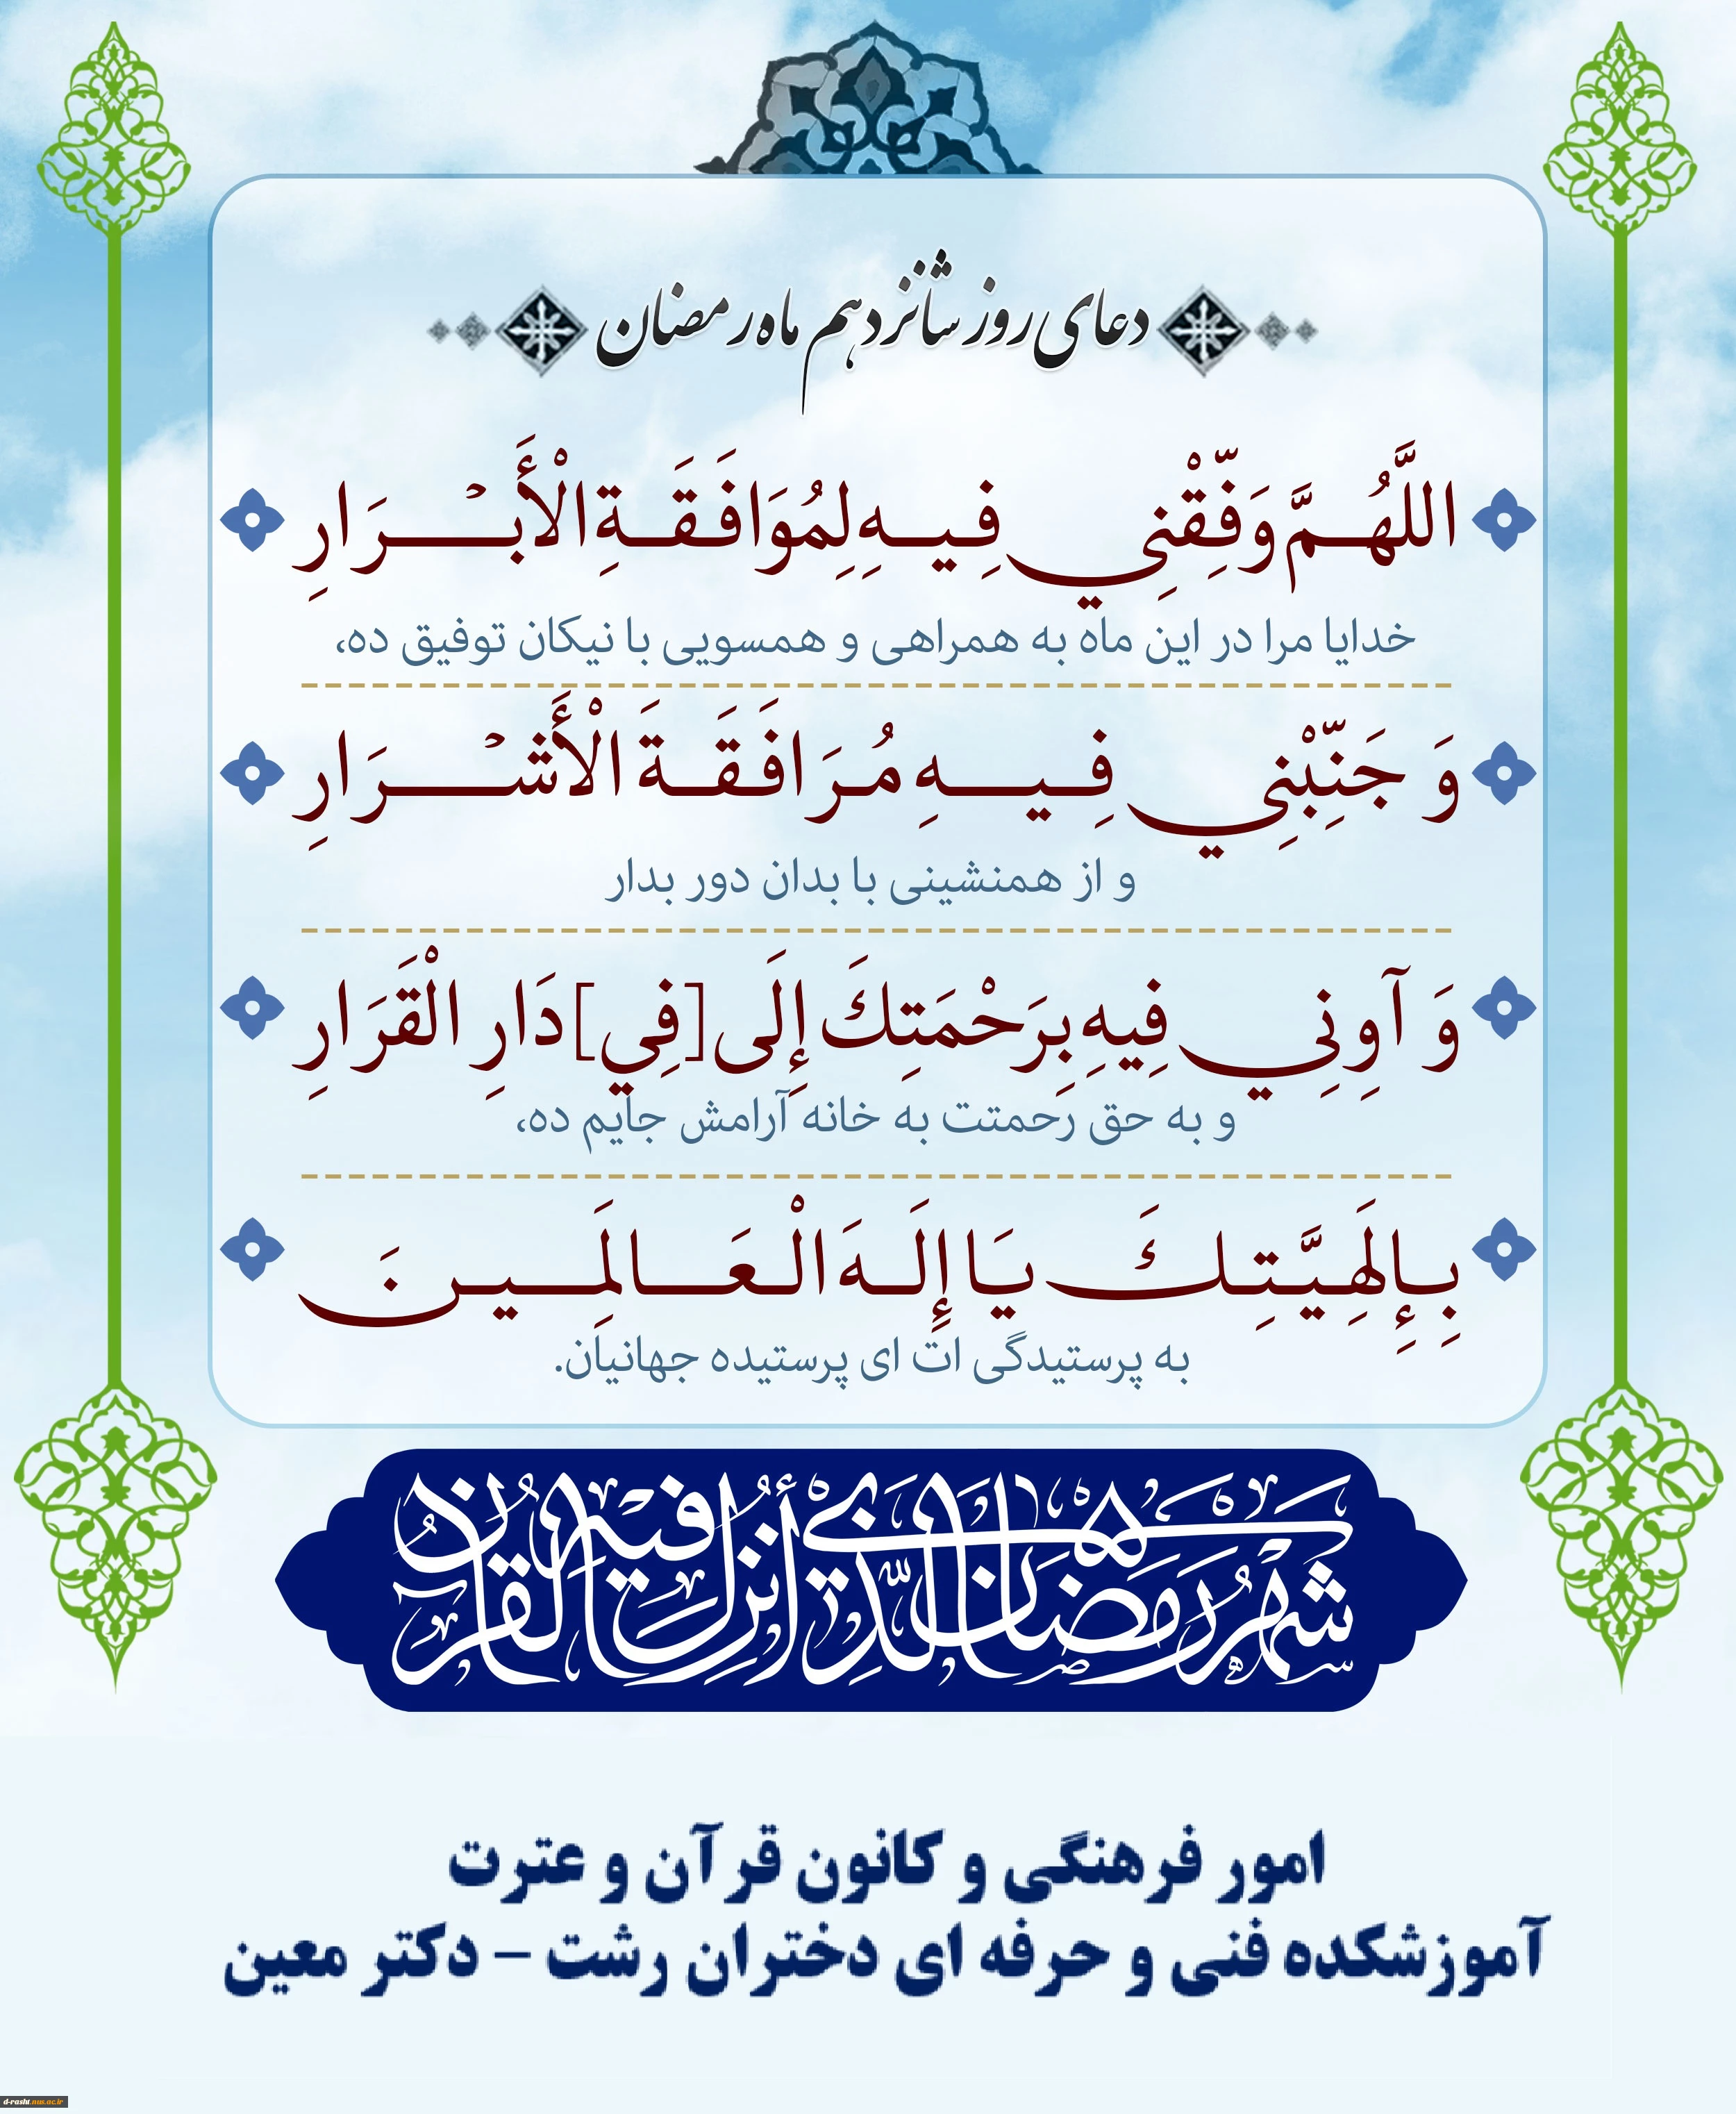 دعای روز شانزدهم ماه رمضان
اللَّهُمَّ وَفِّقْنِي فِيهِ لِمُوَافَقَةِ الْأَبْرَارِ
خدایا مرا در این ماه به همراهی و همسویی با نیکان توفیق ده،
وَ جَنِّبْنِي فِيهِ مُرَافَقَةَ الْأَشْرَارِ
و از همنشینی با بدان دور بدار
وَ آوِنِي فِيهِ بِرَحْمَتِكَ إِلَى [فِي] دَارِ الْقَرَارِ
و به حق رحمتت به خانه آرامش جایم ده،
بِإِلَهِيَّتِكَ يَا إِلَهَ الْعَالَمِينَ
به پرستیدگی ات ای پرستیده جهانیان.
شهر رمضان الذي أنزل فيه القرآن
امور فرهنگی و کانون قرآن و عترت
آموزشکده فنی و حرفه ای دختران رشت – دکتر معین
d-rasht.nus.ac.ir